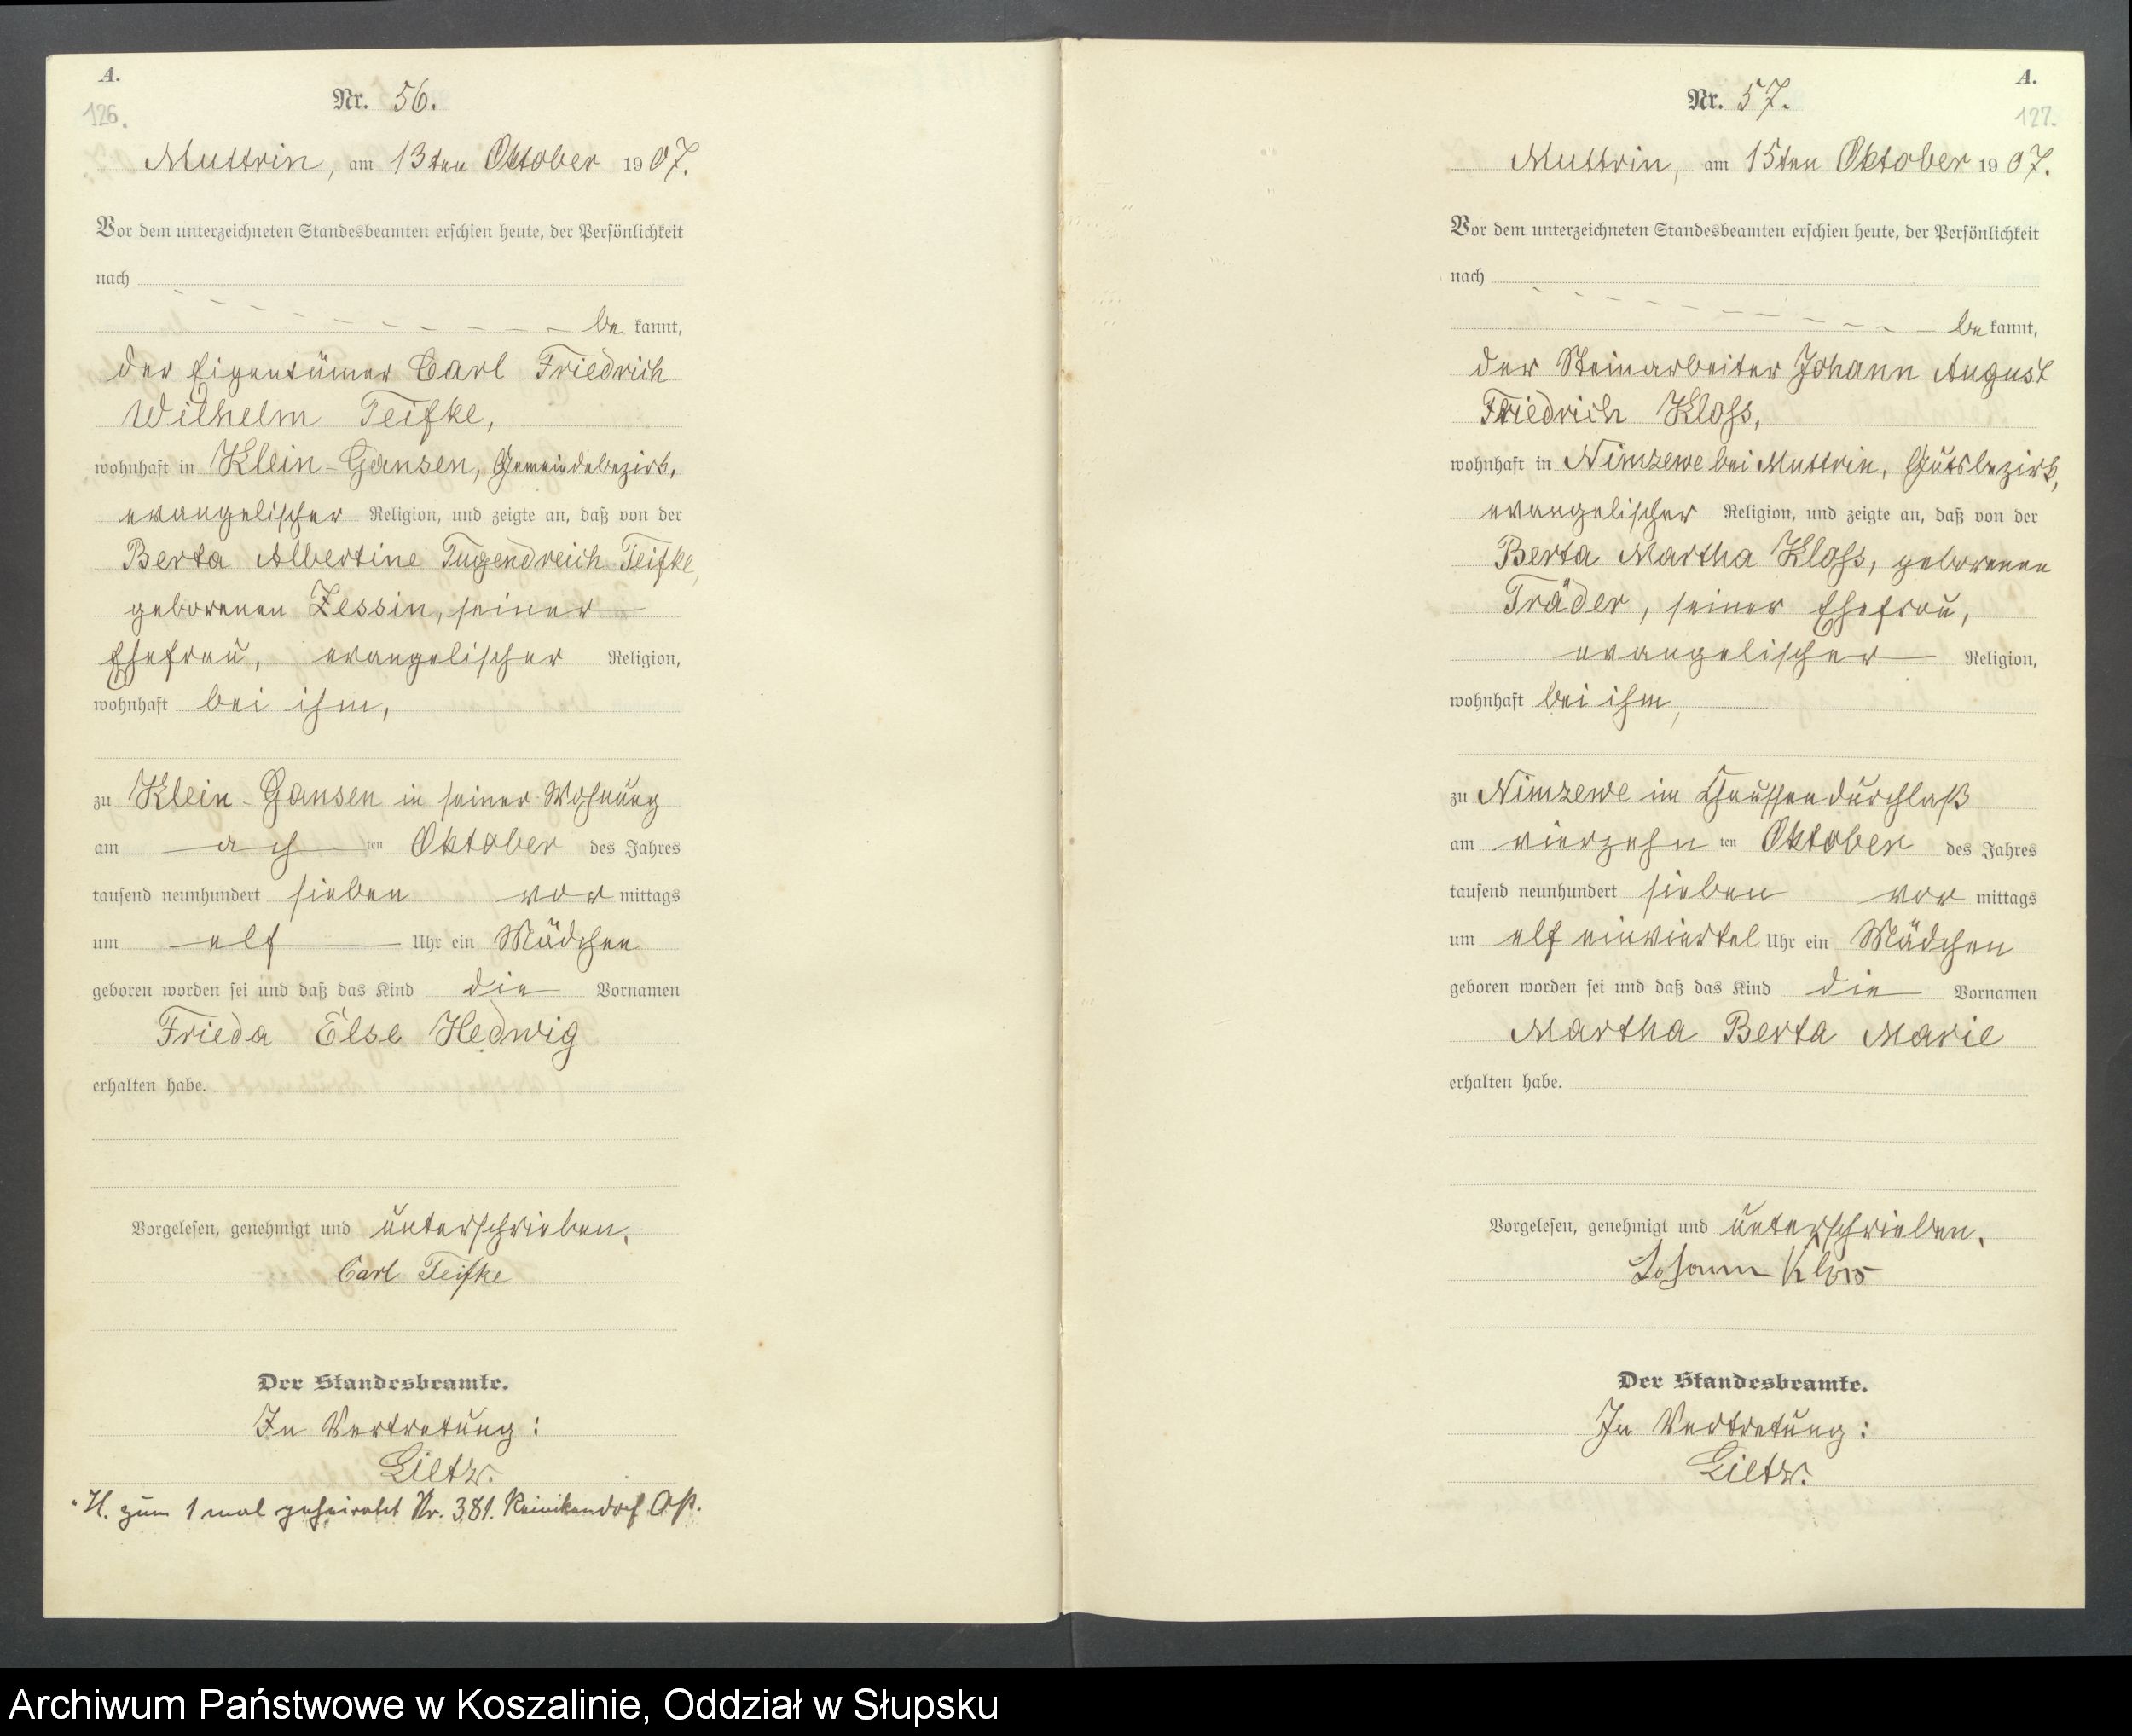 A.
126.
Nr. 56.
Muttrin, am 13ten Oktober 1907.
Vor dem unterzeichneten Standesbeamten erschien heute, der Persönlichkeit
nach
be kannt,
der Eigentümer Carl Friedrich
Wilhelm Teifke,
wohnhaft in Klein-Gansen, Gemeindebezirk,
evangelischer Religion, und zeigte an, daß von der
Berta Albertine Tugendreich Teifke,
geborenen Zessin, seiner
Ehefrau, evangelischer Religion,
wohnhaft bei ihm,
zu Klein-Gansen in seiner Wohnung
am ach ten Oktober des Jahres
tausend neunhundert sieben vor mittags
um elf Uhr ein Mädchen
geboren worden sei und daß das Kind die Vornamen
Frieda Else Hedwig
erhalten habe.
Vorgelesen, genehmigt und unterschrieben.
Carl Teifke
Der Standesbeamte.
In Vertretung:
Lietz.
H. zum 1 mal geheiratet Nr. 381. Reinikendorf Ost.
A.
127.
Nr. 57.
Muttrin, am 15ten Oktober 1907.
Vor dem unterzeichneten Standesbeamten erschien heute, der Persönlichkeit
nach
be kannt,
der Steinarbeiter Johann August
Friedrich Kloss,
wohnhaft in Nimzewe bei Muttrin, Gutsbezirk,
evangelischer Religion, und zeigte an, daß von der
Berta Martha Kloss, geborenen
Träder, seiner Ehefrau,
evangelischer Religion,
wohnhaft bei ihm,
zu Nimzewe im Chausseedurchlaß
am vierzehn ten Oktober des Jahres
tausend neunhundert sieben vor mittags
um elf einviertel Uhr ein Mädchen
geboren worden sei und daß das Kind die Vornamen
Martha Berta Marie
erhalten habe.
Vorgelesen, genehmigt und unterschrieben.
Johann Kloss
Der Standesbeamte.
In Vertretung:
Lietz.
Archiwum Państwowe w Koszalinie, Oddział w Słupsku